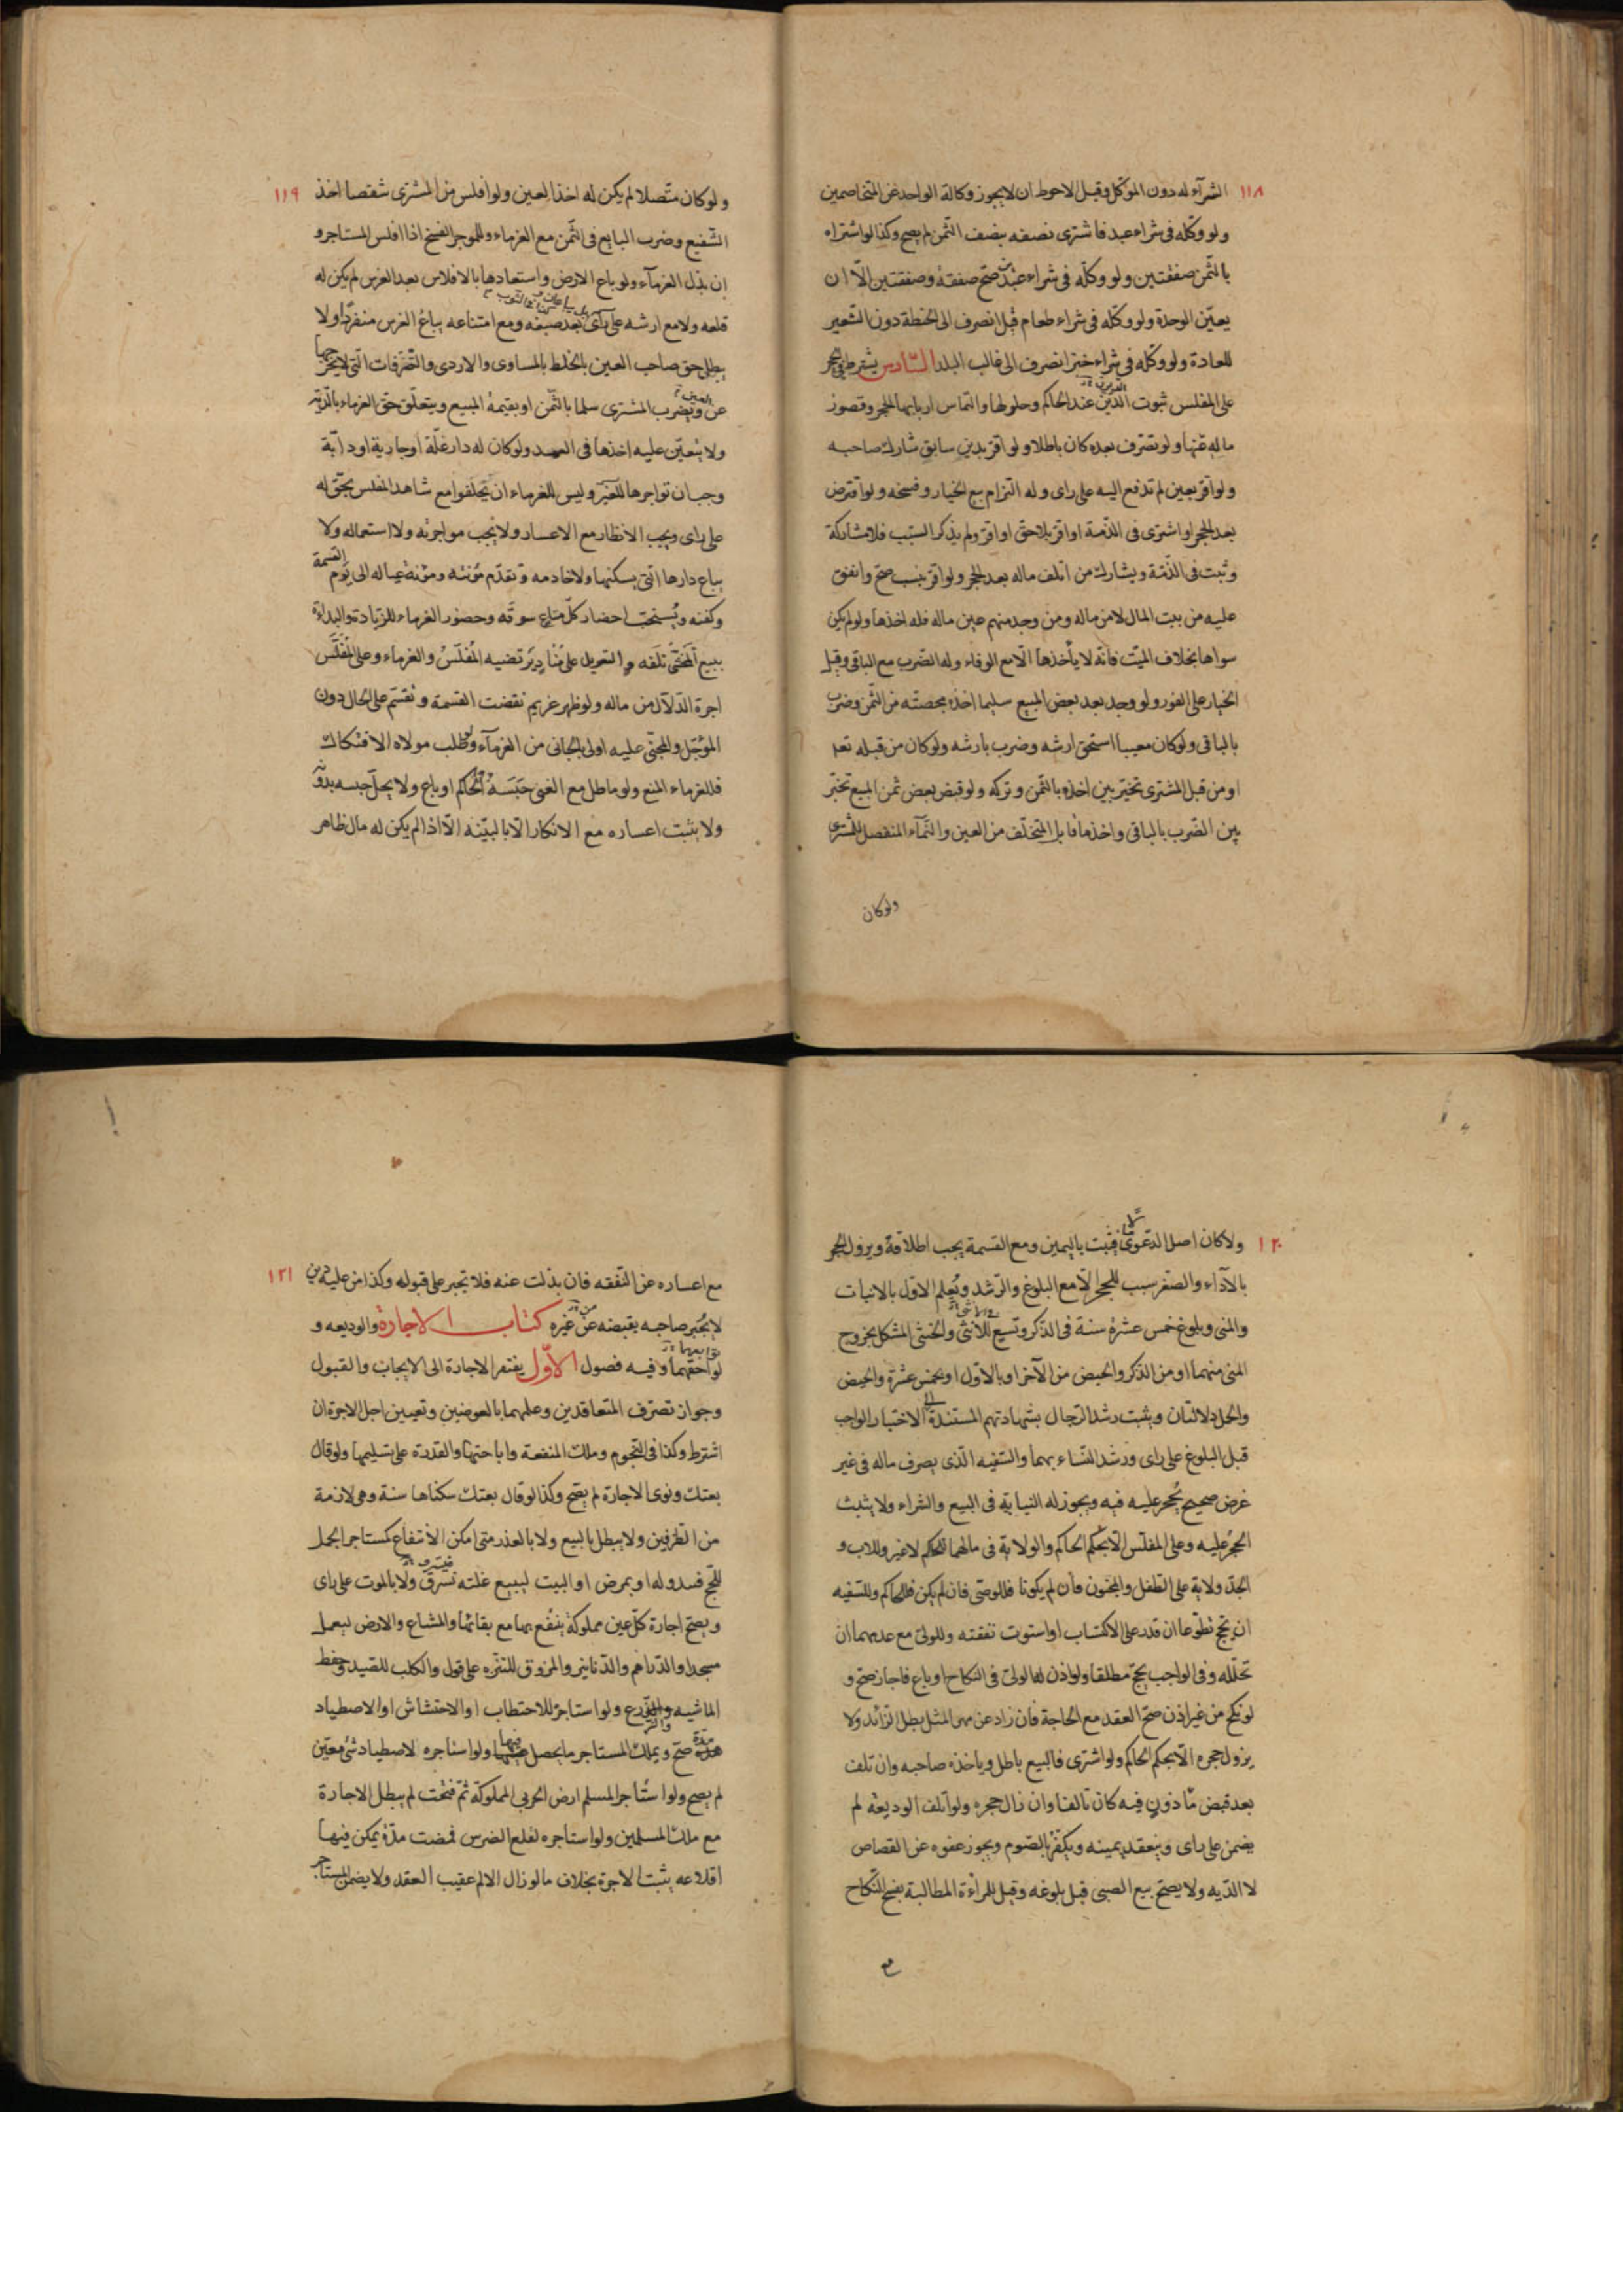 ١١٨
الشرآء له دون الموكل وقيل الاحوط ان لا يجوز وكالة الواحد عن المتخاصمين
ولو وكّله فى شراء عبد فاشترى نصفه بنصف الثّمن لم يصح وكذا لو اشتراه
بالثّمن صفقتين ولو وكّله فى شراء عبدين صحّ صفقة وصفقتين الّا ان
يعيّن الوحدة ولو وكّله فى شراء طعام قيل انصرف الى الحنطة دون الشّعير
للعادة ولو وكّله فى شراء خبز انصرف الى غالب البلد السّادس يشترط فى الحجر
على المفلس ثبوت الدّين عند الحاكم وحلولها والتماس اربابها الحجر وقصور
ماله عنها ولو تصّرف بعده كان باطلا ولو اقرّ بدين سابق شارك صاحبه
ولو اقرّ بعين لم تدفع اليه على راى وله التزام بيع الخيار وفسخه ولو اقترض
بعد الحجر او اشترى فى الذّمة او اقرّ بلاحق او اقرّ ولم يذكر السّبب فلا مشاركة
وثبت فى الذّمّة ويشارك من اتلف ماله بعد الحجر ولو اقرّ بنسب صحّ وانفق
عليه من بيت المال لا من ماله ومن وجد منهم عين ماله فله اخذها ولو لم يكن
سواها بخلاف الميّت فانّه لا يأخذها الّا مع الوفاء وله الضّرب مع الباقى وقيل
الخيار على الفور ولو وجد بعد بعض المبيع سليما اخذه بحصته من الثّمن وضرب
بالباقى ولو كان معيبا استحق ارشه وضرب بارشه ولو كان من قبله تعا
او من قبل المشترى تخيّر بين اخذه بالثمن وتركه ولو قبض بعض ثمن المبيع تخيّر
بين الضّرب بالباقى واخذ ما قابل المتخلّف من العين والنّمآء المنفصل للمشترى
ولو كان
١١٩
ولو كان متّصلا لم يكن له اخذ العين ولو افلس من المشترى شقصا اخذ
الشّفيع وضرب البايع فى الثّمن مع الغرماء وللموجر الفسخ اذا افلس المستاجر و
ان بذل الغرمآء ولو باع الارض واستعادها بالافلاس بعد الغرس لم يكن له
قلعه ولا مع ارشه على رآى بعد صبغه ومع امتناعه يباغ الغرس منفردا ولا
يطل حق صاحب العين بالخلط بالمساوى والاردى والتّصّرفات الّتى لا يخرجها
عن ويضرب المشترى سلما بالثّمن او بقيمة المبيع ويتعلّق حق الغرماء بالدّية
ولا يتعيّن عليه اخذها فى العمد ولو كان له دار غلّة او جارية او دابّة
وجب ان تواجرها للغير وليس للغرماء ان يحلفوا مع شاهد المفلس بحقّ له
على راى ويجب الانظار مع الاعسار ولا يجب مواجرته ولا استعماله ولا
يباع دارها الّتى يسكنها ولا خادمه وتقدّم مؤنته ومؤنة عياله الى يوم القسمة
وكفنه ويستحبّ احضار كلّ متاع سوقه وحضور الغرماء للزيادة والبداءة
ببيع المخشىّ تلفه و التعويل على مُنادٍ يَرتضيه المُفلّسُ والغرماء وعلى المُفلّس
اجرة الدّلّال من ماله ولو ظهر غريم نقضت القسمة وتقسّم على الحال دون
المؤجّل والمجنّى عليه اولى بالجانى من الغرمآء ولو طلب مولاه الافتكاك
فللغرماء المنع ولو ماطل مع الغنى حَبَسَهُ الحاكم او باع ولا يحلّ حبسه بدونه
ولا يثبت اعساره مع الانكار الّا بالبيّنه الّا اذا لم يكن له مال ظاهر
١٢٠
ولا كان اصل الدعوى مالا فيثبت باليمين ومع القسمة يجب اطلاقه ويزول الحجر
بالآداء والصّغر سبب للحجر الّا مع البلوغ والرّشد ويُعلم الاوّل بالانبات
والمنى وبلوغ خمس عشرة سنة فى الذّكر وتسع للانثى والخنثى المشكل بخروج
المنى منهما او من الذّكر والحيض من الآخر او بالاوّل او بخمس عشرة والحيض
والحمل دلالتان ويثبت رشد الرّجال بشهادتهم المستندة الى الاختيار الواجب
قبل البلوغ على راى ورشد النّساء بهما والسّفيه الّذى يصرف ماله فى غير
غرض صحيح يُحجر عليه فيه ويجوز له النيابة فى البيع والشراء ولا يثبت
الحجر عليه وعلى المفلّس الّا بحكم الحاكم والولاية فى مالهما للحاكم لا غير وللاب و
الجدّ ولاية على الطفل والمجنون فان لم يكونا فللوصىّ فان لم يكن فللحاكم وللسّفيه
ان يحجّ تطّوعا ان قدر على الاكتساب او استوت نفقته وللولىّ مع عدمهما ان
تحلّله وفى الواجب يحجّ مطلقا ولو اذن له الولىّ فى النكاح او باع فاجاز صحّ و
لو نكح من غير اذن صحّ العقد مع الحاجة فان زاد عن مهر المثل بطل الزّائد ولا
يزول حجره الّا بحكم الحاكم ولو اشترى فالبيع باطل وياخذه صاحبه وان تلف
بعد قبض مأذون فيه كان تالفا وان زال حجره ولو اتلف الوديعة لم
يضمن على راى وينعقد يمينه ويكفّر بالصّوم ويجوز عفوه عن القصاص
لا الدّيه ولا يصحّ بيع الصبى قبل بلوغه وقيل للمراءة المطالبة بفسخ النّكاح
مع
١٢١
مع اعساره عن النّفقه فان بذلت عنه فلا تجبر على قبوله وكذا من عليه دين
لا يُجبر صاحبه بقبضه عن غيره كتاب الاجارة والوديعه و
لواحقهما وفيه فصول الاوّل يفتقر الاجارة الى الايجاب والقبول
وجواز تصّرف المتعاقدين وعلمهما بالعوضين وتعيين اجل الاجرة ان
اشترط وكذا فى النّجوم وملك المنفعة واباحتها والقدرة على تسليمها ولو قال
بعتك ونوى الاجارة لم يصّح وكذا لو قال بعتك سكناها سنة وهى لازمة
من الطّرفين ولا يبطل بالبيع ولا بالعذر متى امكن الانتفاع كمستاجر الجمل
للحّج فبدو له او يمرض او البيت ليبيع غلته ولا بالموت على راى
ويصحّ اجارة كلّ عين مملوكة ينتفع بها مع بقائها والمشاع والارض ليعمل
مسجدا والدّراهم والدّنانير والمزوق للتنزّه على قول والكلب للصّيد وحفظ
الماشيه والزّرع ولو استاجر للاحتطاب او الاحتشاش او الاصطياد
مدّة صّح ويملك المستاجر ما يحصل فيها ولو استاجره لاصطياد شئ معيّن
لم يصح ولو استأجر المسلم ارض الحربى المملوكة ثمّ فتحت لم يبطل الاجارة
مع ملك المسلمين ولو استاجره لقلع الضرس فمضت مدّة يمكن فيها
اقلاعه يثبت الاجرة بخلاف ما لو زال الالم عقيب العقد ولا يضمن المستاجر